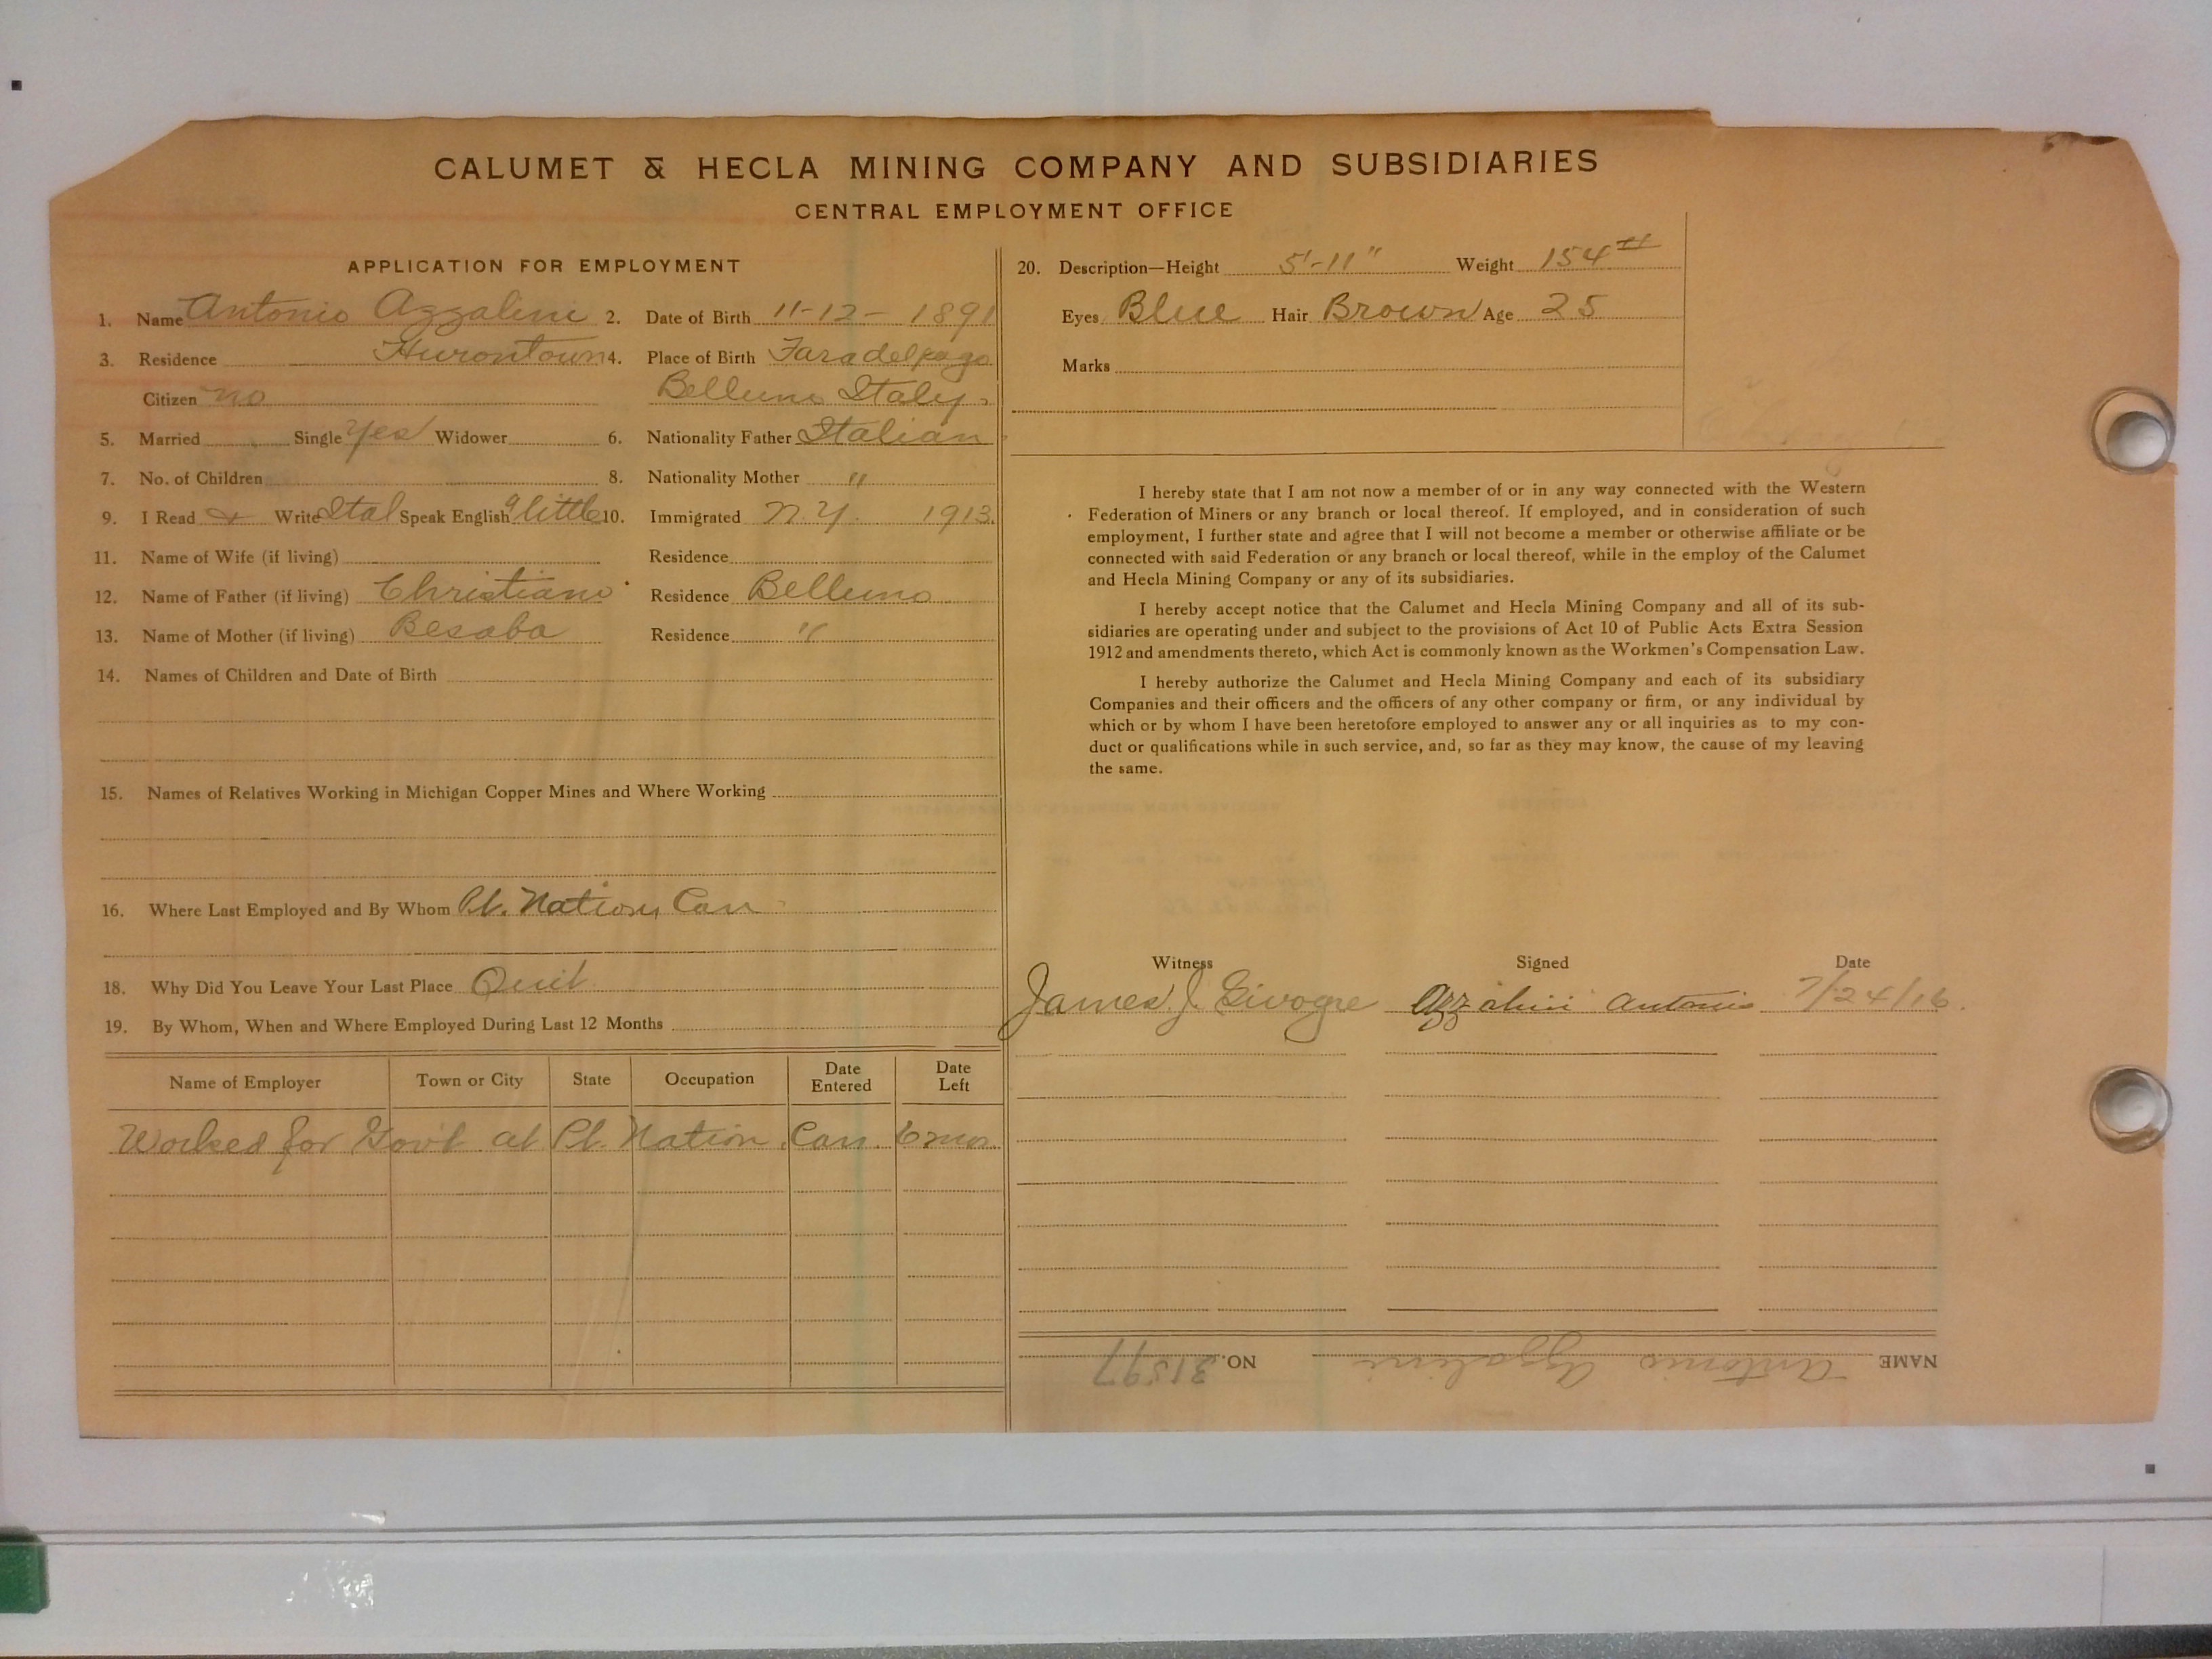 CALUMET & HECLA MINING COMPANY AND SUBSIDIARIES
CENTRAL EMPLOYMENT OFFICE
APPLICATION FOR EMPLOYMENT
1. Name Antonio Azzalini 2. Date of Birth 11-12-1891
3. Residence Hurontown 4. Place of Birth Faradelpago
Citizen no Belluno Italy
5. Married Single Yes Widower 6. Nationality Father Italian
7. No. of Children 8. Nationality Mother "
9. I Read & Write Ital Speak English a little 10. Immigrated N.Y. 1913
11. Name of Wife (if living) Residence
12. Name of Father (if living) Christiano Residence Belluno
13. Name of Mother (if living) Besaba Residence "
14. Names of Children and Date of Birth
15. Names of Relatives Working in Michigan Copper Mines and Where Working
16. Where Last Employed and By Whom Pt. Nation, Can
18. Why Did You Leave Your Last Place Quit
19. By Whom, When and Where Employed During Last 12 Months
Name of Employer Town or City State Occupation Date Entered Date Left
Worked for Gov't at Pt. Nation, Can. 6 mos.
20. Description—Height 5'-11" Weight 154#
Eyes Blue Hair Brown Age 25
Marks
I hereby state that I am not now a member of or in any way connected with the Western
Federation of Miners or any branch or local thereof. If employed, and in consideration of such
employment, I further state and agree that I will not become a member or otherwise affiliate or be
connected with said Federation or any branch or local thereof, while in the employ of the Calumet
and Hecla Mining Company or any of its subsidiaries.
I hereby accept notice that the Calumet and Hecla Mining Company and all of its sub-
sidiaries are operating under and subject to the provisions of Act 10 of Public Acts Extra Session
1912 and amendments thereto, which Act is commonly known as the Workmen's Compensation Law.
I hereby authorize the Calumet and Hecla Mining Company and each of its subsidiary
Companies and their officers and the officers of any other company or firm, or any individual by
which or by whom I have been heretofore employed to answer any or all inquiries as to my con-
duct or qualifications while in such service, and, so far as they may know, the cause of my leaving
the same.
Witness Signed Date
James J. Azzalini Antonio 7/24/16
NAME Antonio Azzalini NO. 31597